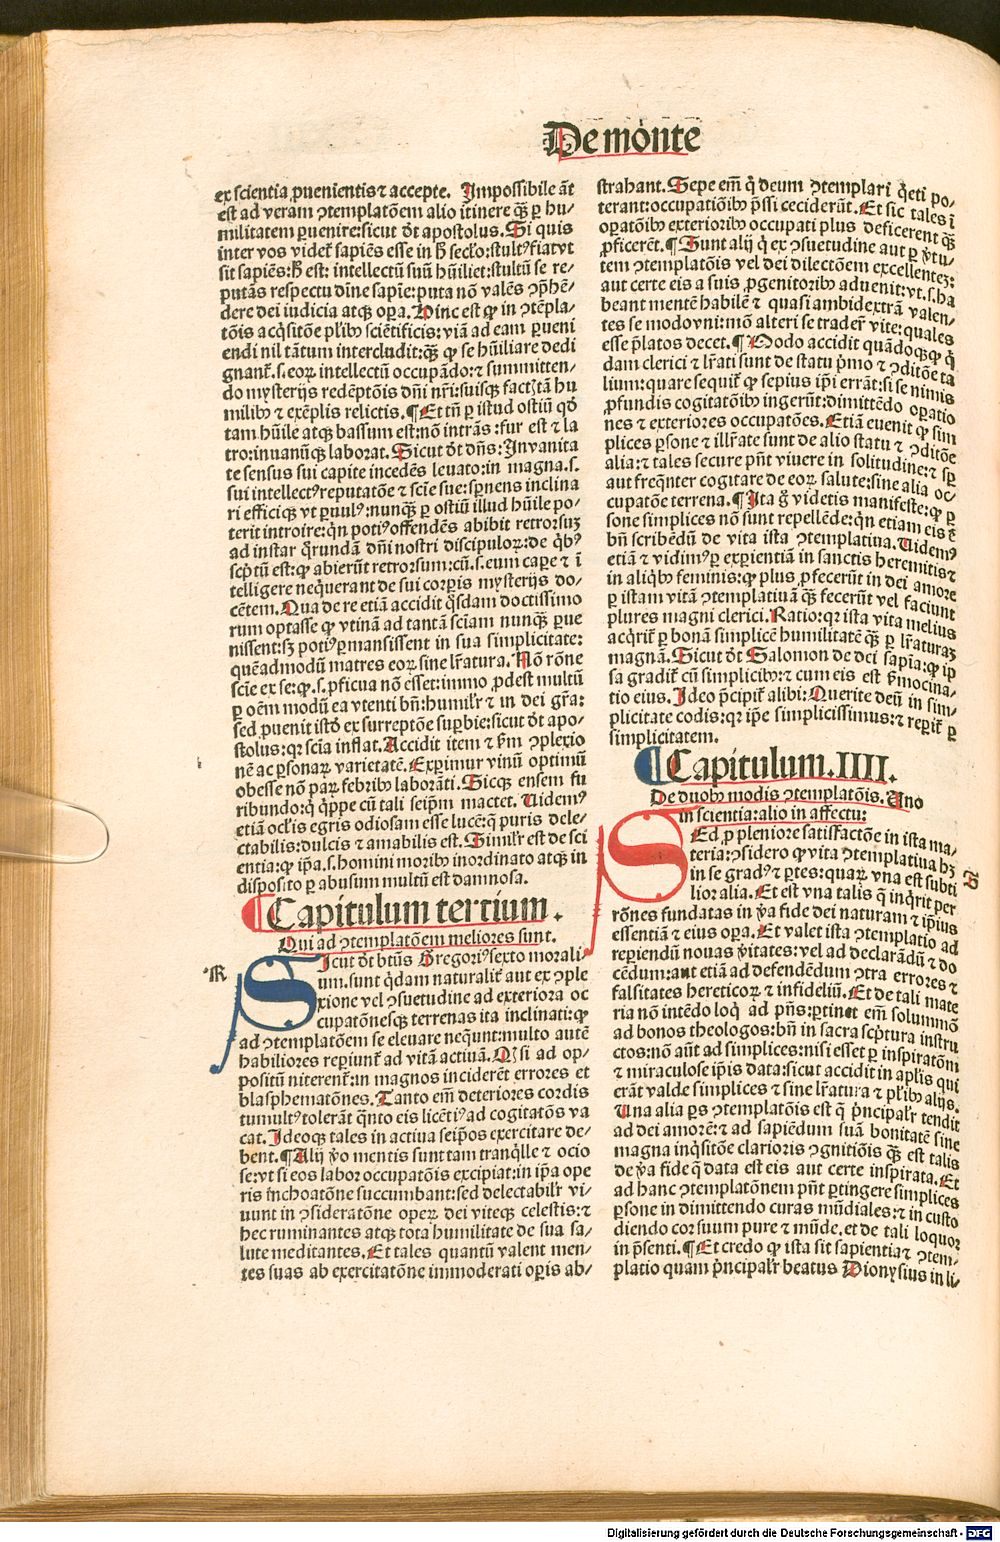 De mōnte
ex scientia ꝓuenientis ⁊ accepte. Impossibile āt
est ad veram ꝯtemplatōem alio itinere qꝫ̄ ꝑ hu⸗
militatem ꝑuenire: sicut dt̄ apostolus. Si quis
inter vos videt̄ sapiēs esse in h̄ secl̄o: stultꝰ fiat vt
sit sapiēs: h̄ est: intellectū suū hūiliet: stultū se re⸗
putās respectu diuīe sapīe: puta nō valēs ꝯp̄hē⸗
dere dei iudicia atqꝫ oꝑa. Hinc est ꝙ in ꝯtēpla⸗
tōis acq̄sitōe pl̄ibꝰ sciētificis: viā ad eam ꝑueni
endi nil tātum intercludit: qꝫ̄ ꝙ se hūiliare dedi
gnant̄. s. eoꝝ intellectū occupādo: ⁊ summitten⸗
do mysterijs redēptōis dn̄i nr̄i: suisqꝫ fact̄ tā hu
milibꝰ ⁊ exēplis relictis. ¶ Et tn̄ ꝑ istud ostiū qd̄
tam hūile atqꝫ bassum est: nō intrās: fur est ⁊ la
tro: in uanūqꝫ laborat. Sicut dt̄ dn̄s: In vanita
te sensus sui capite incedēs leuato: in magna. s.
sui intellectꝰ reputatōe ⁊ scīe sue: spernens inclina
ri efficiqꝫ vt ꝑuulꝰ: nunqꝫ̄ ꝑ ostiū illud hūile po⸗
terit introire: qn̄ potiꝰ offendēs abibit retrorsuꝫ
ad instar qrundā dn̄i nostri discipuloꝝ: de qbꝰ
scp̄tū est: ꝙ abierūt retrorsum: cū. s. eum caꝑe ⁊ ī
telligere nequerant de sui corꝑis mysterijs do⸗
cētem. Qua de re etiā accidit qsdam doctissimo
rum optasse ꝙ vtinā ad tantā scīam nunqꝫ̄ ꝑue
nissent: sꝫ potiꝰ ꝑmansissent in sua simplicitate:
quēadmodū matres eoꝝ sine lr̄atura. Nō rōne
scīe ex se: ꝙ. s. ꝓficua nō esset: immo ꝓdest multū
ꝑ oēm modū ea vtenti bn̄: humilr̄ ⁊ in dei gr̄a:
sed ꝓuenit istō ex surreptōe suꝑbie: sicut dt̄ apo⸗
stolus: qꝛ scīa inflat. Accidit item ⁊ h̄m ꝯplexio
nē ac ꝑsonaꝝ varietatē. Experimur vinū optimū
obesse nō paꝝ febribꝰ laborāti. Sicqꝫ ensem fu
ribundo: q q̄ppe cū tali seip̄m mactet. Uidemꝰ
etiā ocl̄is egris odiosam esse lucē: q puris dele⸗
ctabilis: dulcis ⁊ amabilis est. Similr̄ est de sci
entia: ꝙ ip̄a. s. homini moribꝰ inordinato atqꝫ in
disposito ꝑ abusum multū est damnosa.
¶ Capitulum tertium.
Qui ad ꝯtemplatōem meliores sunt.
R
SIcut dt̄ btūs Gregoriꝰ sexto morali⸗
um. sunt qdam naturalit̄ aut ex ꝯple
xione vel ꝯsuetudine ad exteriora oc
cupatōnesqꝫ terrenas ita inclinati: ꝙ
ad ꝯtemplatōem se eleuare neqūnt: multo autē
habiliores reꝑiunt̄ ad vitā actiuā. Qꝛ si ad op⸗
positū niterent̄: in magnos inciderēt errores et
blasphematōnes. Tanto em̄ deteriores cordis
tumultꝰ tolerāt qnto eis licētiꝰ ad cogitatōs va
cat. Ideoqꝫ tales in actiua seip̄os exercitare de⸗
bent. ¶ Alij ṽo mentis sunt tam tranqlle ⁊ ocio
se: vt si eos labor occupatōis excipiat: in ip̄a ope
ris inchoatōne succumbant: sed delectabilr̄ vi⸗
uunt in ꝯsideratōne operꝝ dei viteqꝫ celestis: ⁊
hec ruminantes atqꝫ tota humilitate de sua sa⸗
lute meditantes. Et tales quantū valent men⸗
tes suas ab exercitatōne immoderati oꝑis ab⸗
strahant. Sepe em̄ q deum ꝯtemplari qeti po⸗
terant: occupatiōibꝰ p̄ssi ceciderūt. Et sic tales ī
oꝑatōibꝰ exterioribꝰ occupati plus deficerent qꝫ̄
ꝓficerēt. ¶ Sunt alij q ex ꝯsuetudine aut ꝑ ṽtu⸗
tem ꝯtemplatōis vel dei dilectōem excellentez:
aut certe eis a suis ꝓgenitoribꝰ aduenit: vt. s. ha
beant mentē habilē ⁊ quasi ambidextrā valen⸗
tes se modo vni: mō alteri se trader̄ vite: quales
esse p̄latos decet. ¶ Modo accidit quādoqꝫ ꝙ q
dam clerici ⁊ lr̄ati sunt de statu p̄mo ⁊ ꝯditōe ta
lium: quare sequit̄ ꝙ sepius ip̄i errāt: si se nimis
ꝓfundis cogitatōibꝰ ingerūt: dimittēdo oꝑatio
nes ⁊ exteriores occupatōes. Etiā euenit ꝙ sim
plices ꝑsone ⁊ illr̄ate sunt de alio statu ⁊ ꝯditōe
alia: ⁊ tales secure pn̄t viuere in solitudine: ⁊ sꝑ
aut freqnter cogitare de eoꝝ salute: sine alia oc⸗
cupatōe terrena. ¶ Ita ḡ videtis manifeste: ꝙ ꝑ
sone simplices nō sunt repellēde: qn̄ etiam eis ē
bn̄ scribēdū de vita ista ꝯtemplatiua. Uidemꝰ
etiā ⁊ vidimꝰ ꝑ exꝑientiā in sanctis heremitis ⁊
in aliqbꝰ feminis: ꝙ plus ꝓfecerūt in dei amore
ꝑ istam vitā ꝯtemplatiuā qꝫ̄ fecerūt vel faciunt
plures magni clerici. Ratio: qꝛ ista vita melius
acqrit̄ ꝑ bonā simplicē humilitatē qꝫ̄ ꝑ lr̄aturaꝫ
magnā. Sicut dt̄ Salomon de dei sapīa: ꝙ ip
sa gradit̄ cū simplicibꝰ: ⁊ cum eis est s̄mocina⸗
tio eius. Ideo p̄cipit̄ alibi: Querite deū in sim⸗
plicitate codis: qꝛ ip̄e simplicissimus: ⁊ reꝑit̄ ꝑ
simplicitatem.
¶ Capitulum. IIII.
De duobꝰ modis ꝯtemplatōis. Uno
in scientia: alio in affectu:
SEd ꝓ pleniore satisfactōe in ista ma⸗
teria: ꝯsidero ꝙ vita ꝯtemplatiua hꝫ
in se gradꝰ ⁊ ꝑtes: quaꝝ vna est subti
lior alia. Et est vna talis q inqrit per
rōnes fundatas in ṽa fide dei naturam ⁊ ip̄ius
essentiā ⁊ eius oꝑa. Et valet ista ꝯtemplatio ad
reꝑiendū nouas ṽitates: vel ad declarādū ⁊ do
cēdum: aut etiā ad defendēdum ꝯtra errores ⁊
falsitates hereticoꝝ ⁊ infideliū. Et de tali mate
ria nō intēdo loq ad pn̄s: ꝑtinet em̄ solummō
ad bonos theologos: bn̄ in sacra scp̄tura instru
ctos: nō aūt ad simplices: nisi esset ꝑ inspiratōm
⁊ miraculose ip̄is data: sicut accidit in apl̄is qui
erāt valde simplices ⁊ sine lr̄atura ⁊ pl̄ibꝰ alijs.
Una alia ꝑs ꝯtemplatōis est q p̄ncipalr̄ tendit
ad dei amorē: ⁊ ad sapiēdum suā bonitatē sine
magna inqsitōe clarioris ꝯgnitiōis qꝫ̄ est talis
de ṽa fide q data est eis aut certe inspirata. Et
ad hanc ꝯtemplatōnem pn̄t ꝑtingere simplices
ꝑsone in dimittendo curas mūdiales: ⁊ in custo
diendo cor suum pure ⁊ mūde. et de tali loquor
in p̄senti. ¶ Et credo ꝙ ista sit sapientia ⁊ ꝯtem⸗
platio quam p̄ncipalr̄ beatus Dionysius in li⸗
Digitalisierung gefördert durch die Deutsche Forschungsgemeinschaft - DFG